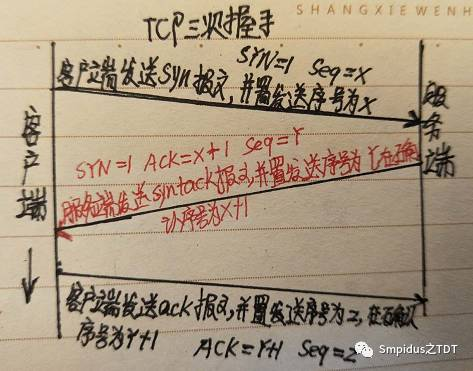 SHANGXIEWENH
TCP三次握手
SYN=1 Seq=X
客户端发送syn报文,并置发送序号为X
客户端
服务端
SYN=1 ACK=X+1 Seq=Y
服务端发送syn+ack报文,并置发送序号为Y,在确
认序号为X+1
客户端发送ack报文,并置发送序号为Z,在确认
序号为Y+1
ACK=Y+1 Seq=Z
Smpidus之TDT